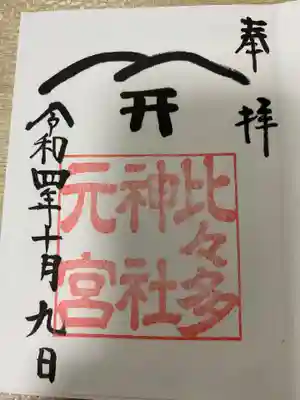 奉拝
开
比々多
神社
元宮
令和四年十月九日